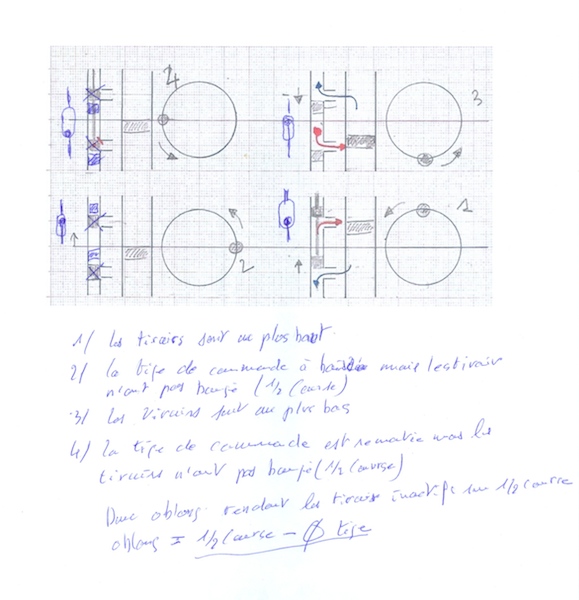 4
3
2
1
1/ les tiroirs sont au plus haut.
2/ la tige de commande à mais les tiroirs
n'ont pas bougé (1/2 course)
3/ Les tiroirs sont au plus bas
4/ la tige de commande est remontée mais les
tiroirs n'ont pas bougé (1/2 course)
Donc oblong rendant les tiroirs inactifs sur 1/2 course
oblong = 1/2 course - Ø tige